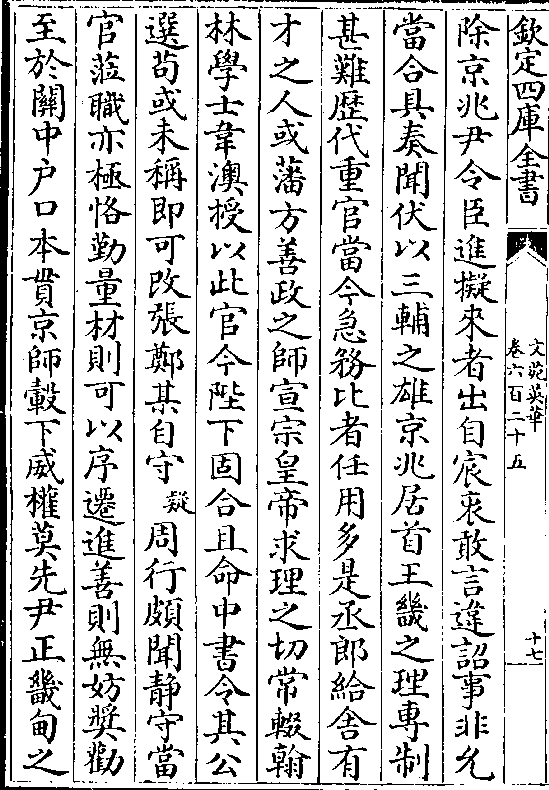 欽定四庫全書
文苑英華
卷六百二十五
十七
除京兆尹令臣進擬來者出自宸衷敢言違詔事非允
當合具奏聞伏以三輔之雄京兆居首王畿之理專制
甚難歴代重官當今急務比者任用多是丞郎給舍有
才之人或藩方善政之師宣宗皇帝求理之切常輟翰
林學士韋澳授以此官今陛下固合且命中書令其公
選茍或未稱即可改張鄭某自守疑周行頗聞静守當
官蒞職亦極恪勤量材則可以序遷進善則無妨奬勸
至於闗中户口本貫京師轂下威權莫先尹正畿甸之